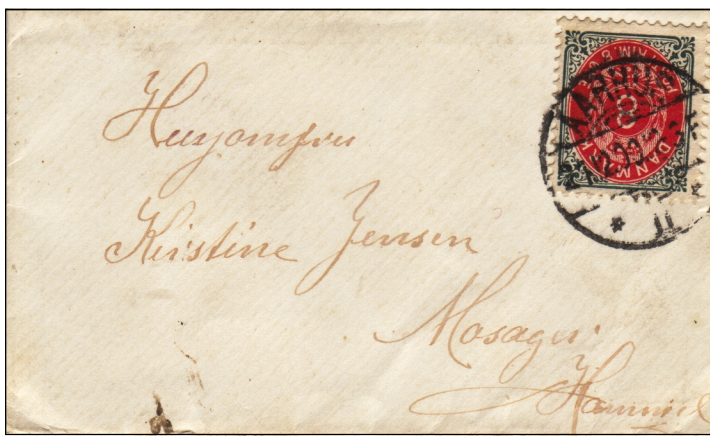 Husjomfru
Kirstine Jensen
Mosager.
Hammel
AARHUS
DANMARK
8